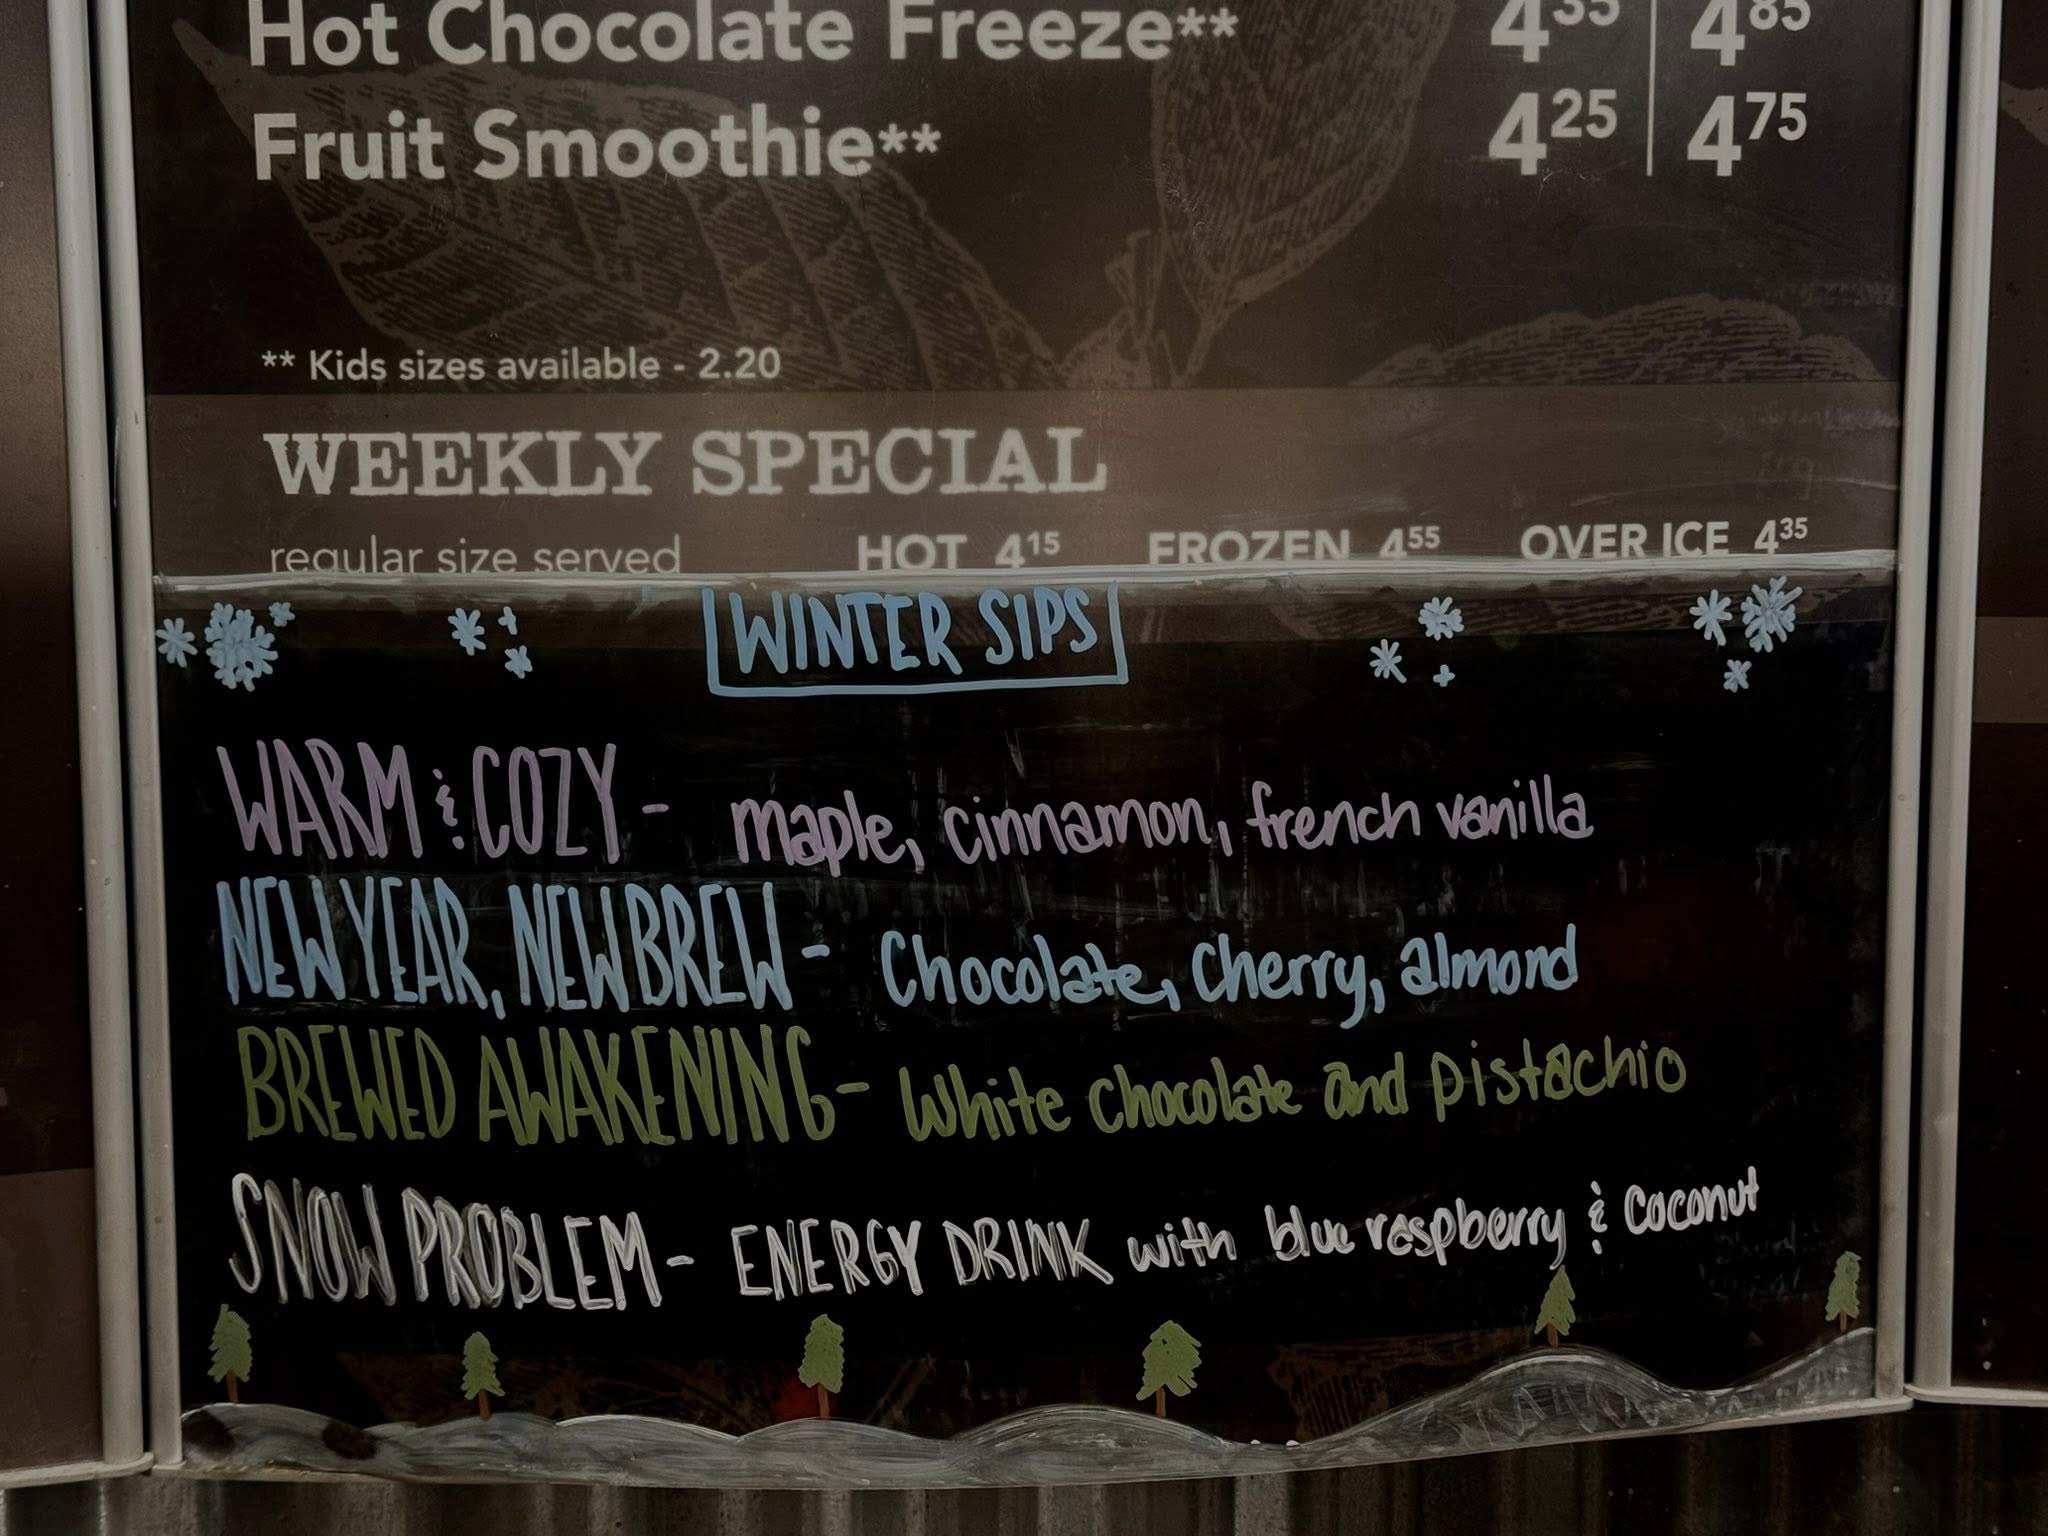 Hot Chocolate Freeze** 4.35 | 4.85
Fruit Smoothie** 4.25 | 4.75
** Kids sizes available - 2.20
WEEKLY SPECIAL
regular size served HOT 4.15 FROZEN 4.55 OVER ICE 4.35
WINTER SIPS
WARM & COZY - maple, cinnamon, french vanilla
NEW YEAR, NEW BREW - Chocolate, Cherry, almond
BREWED AWAKENING - White chocolate and pistachio
SNOW PROBLEM - ENERGY DRINK with blue raspberry & coconut